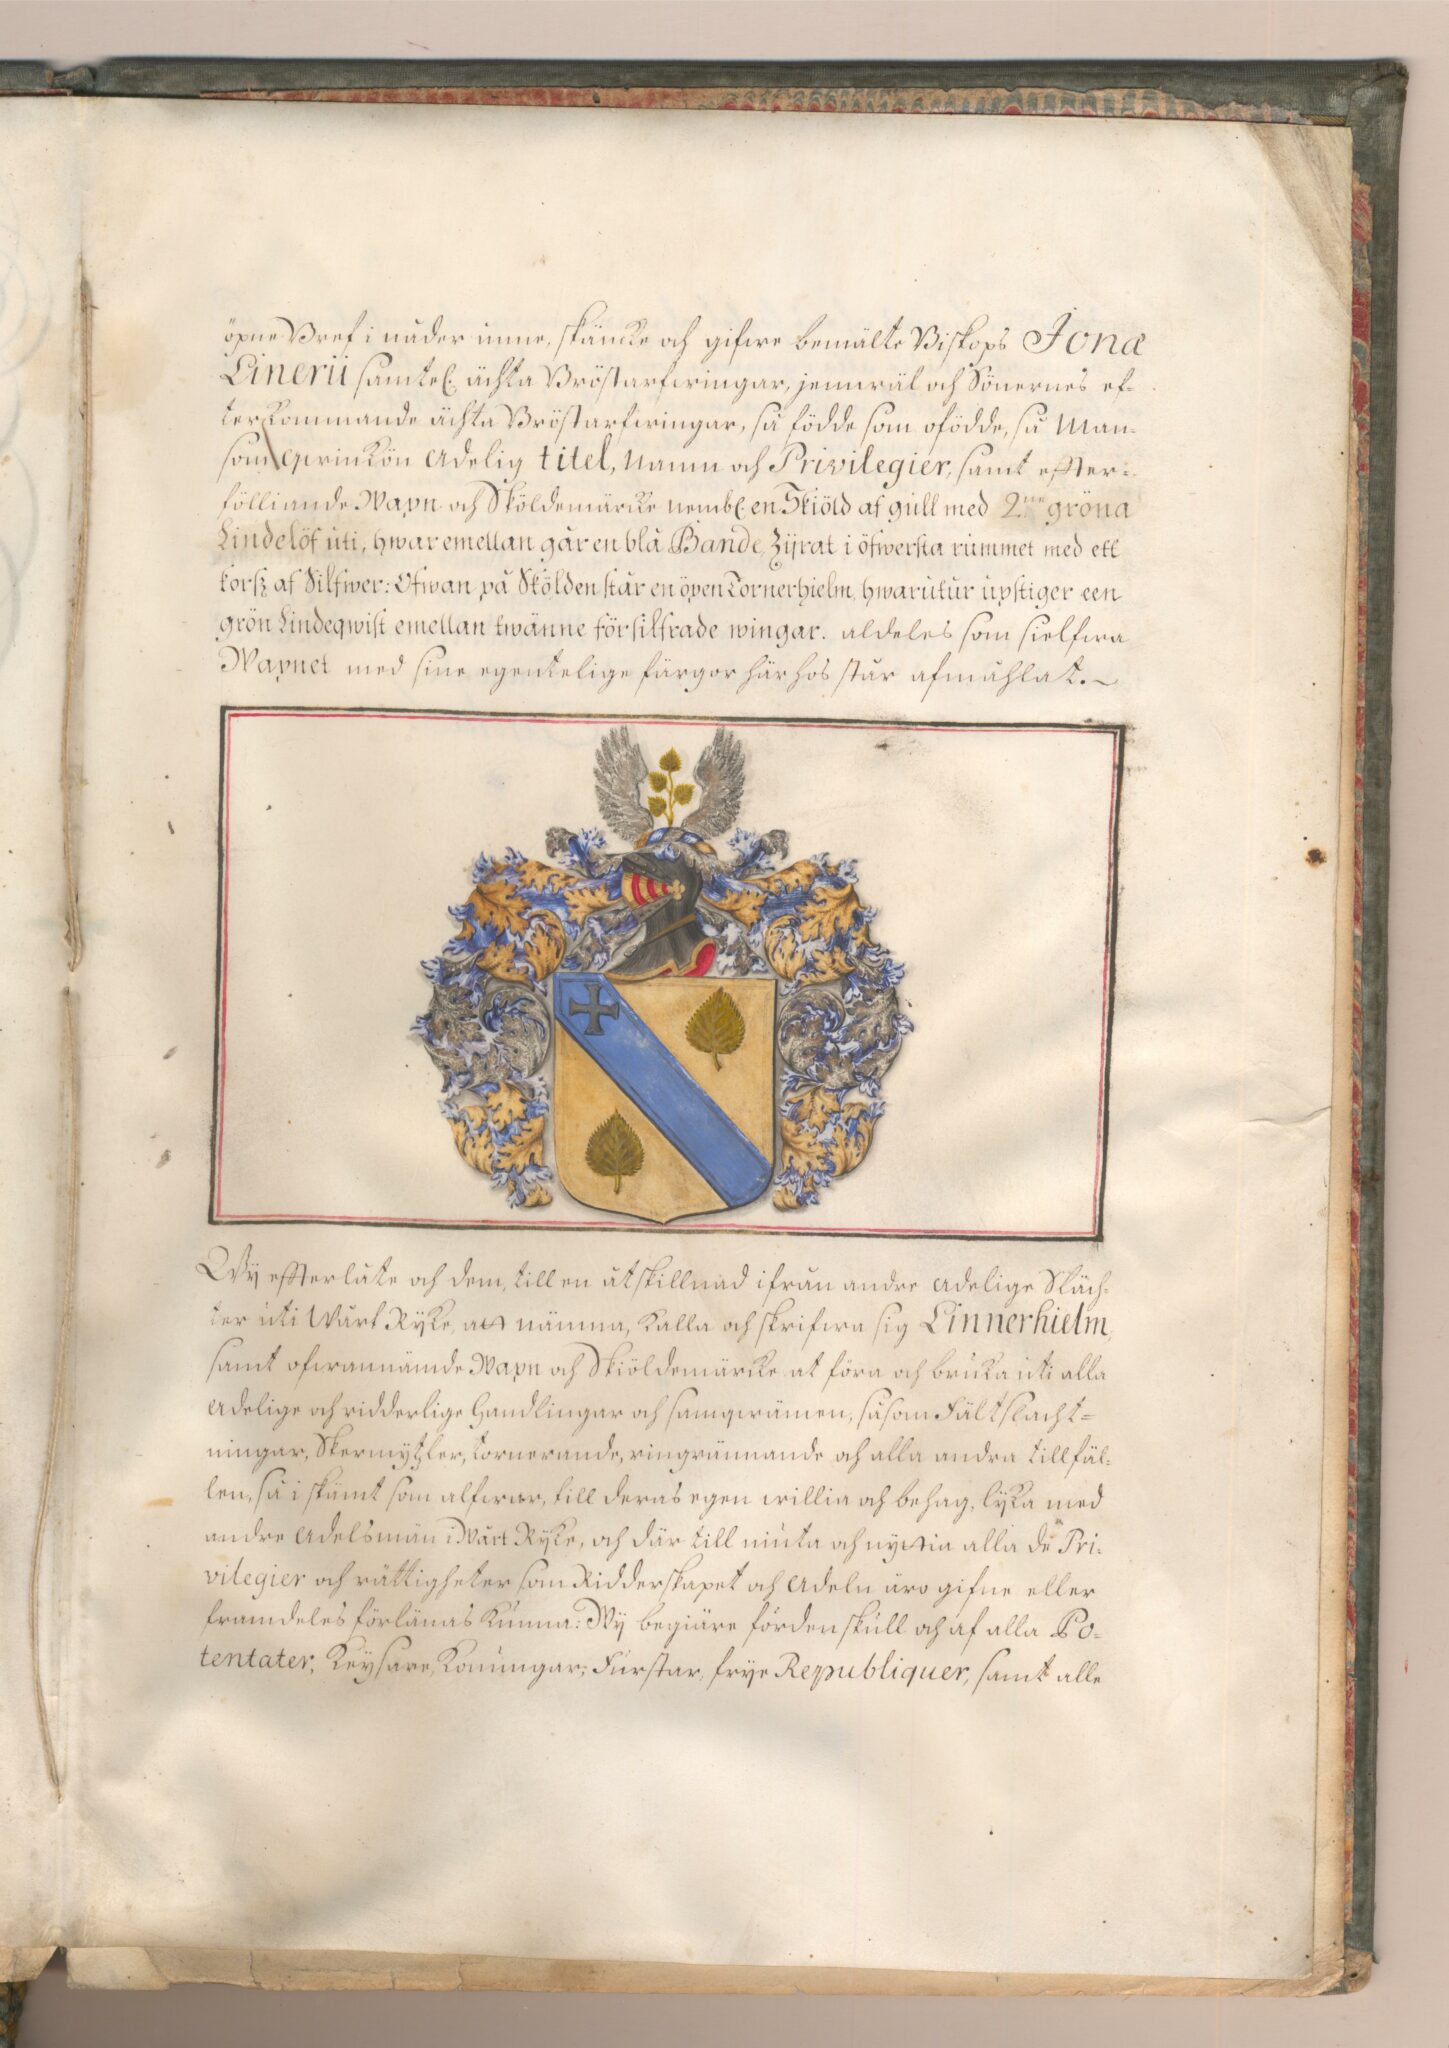 öpne Bref i nåder unne, skäncke och gifwe bemälte Biskops Jonæ
Linerii samtel. ächta Bröstarfwingar, jemwäl och Sönernes ef-
terkommande ächta Bröstarfwingar, så födde som ofödde, så Man-
som Qwinkön Adelig titel, Namn och Privilegier, samt effter-
fölliande Wapn och Sköldemärcke nembl. en Skiöld af gull med 2ne gröna
Lindelöf uti, hwar emellan går en blå Bande, Zijrat i öfwersta rummet med ett
korsz af Silfwer: Ofwan på Skölden står en öpen Tornerhielm, hwarutur upstiger een
grön Lindeqwist emellan twänne försilfrade wingar. aldeles som sielfwa
Wapnet med sine egentelige färgor här hos står afmåhlat.
Wy effterlåte och dem, till en åtskillnad ifrån andre Adelige Släch-
ter uti Wårt Ryke, att nämna, kalla och skrifwa sig Linnerhielm,
samt ofwannämde Wapn och Skiöldemärcke at föra och bruka uti alla
Adelige och ridderlige Handlingar och samqwämen, såsom Fältslacht-
ningar, Skermytzler, tornerande, ringrännande och alla andra tillfäl-
len, så i skämt som alfwar, till deras egen willia och behag, lyka med
andre Adelsmän i Wårt Ryke, och där till niuta och nyttia alla de Pri-
vilegier och rättigheter som Ridderskapet och Adeln äro gifne eller
framdeles förlänas kunna: Wy begiäre fördenskull och af alla Po-
tentater, Keysare, Konungar, Furstar, frye Republiquer, samt alle